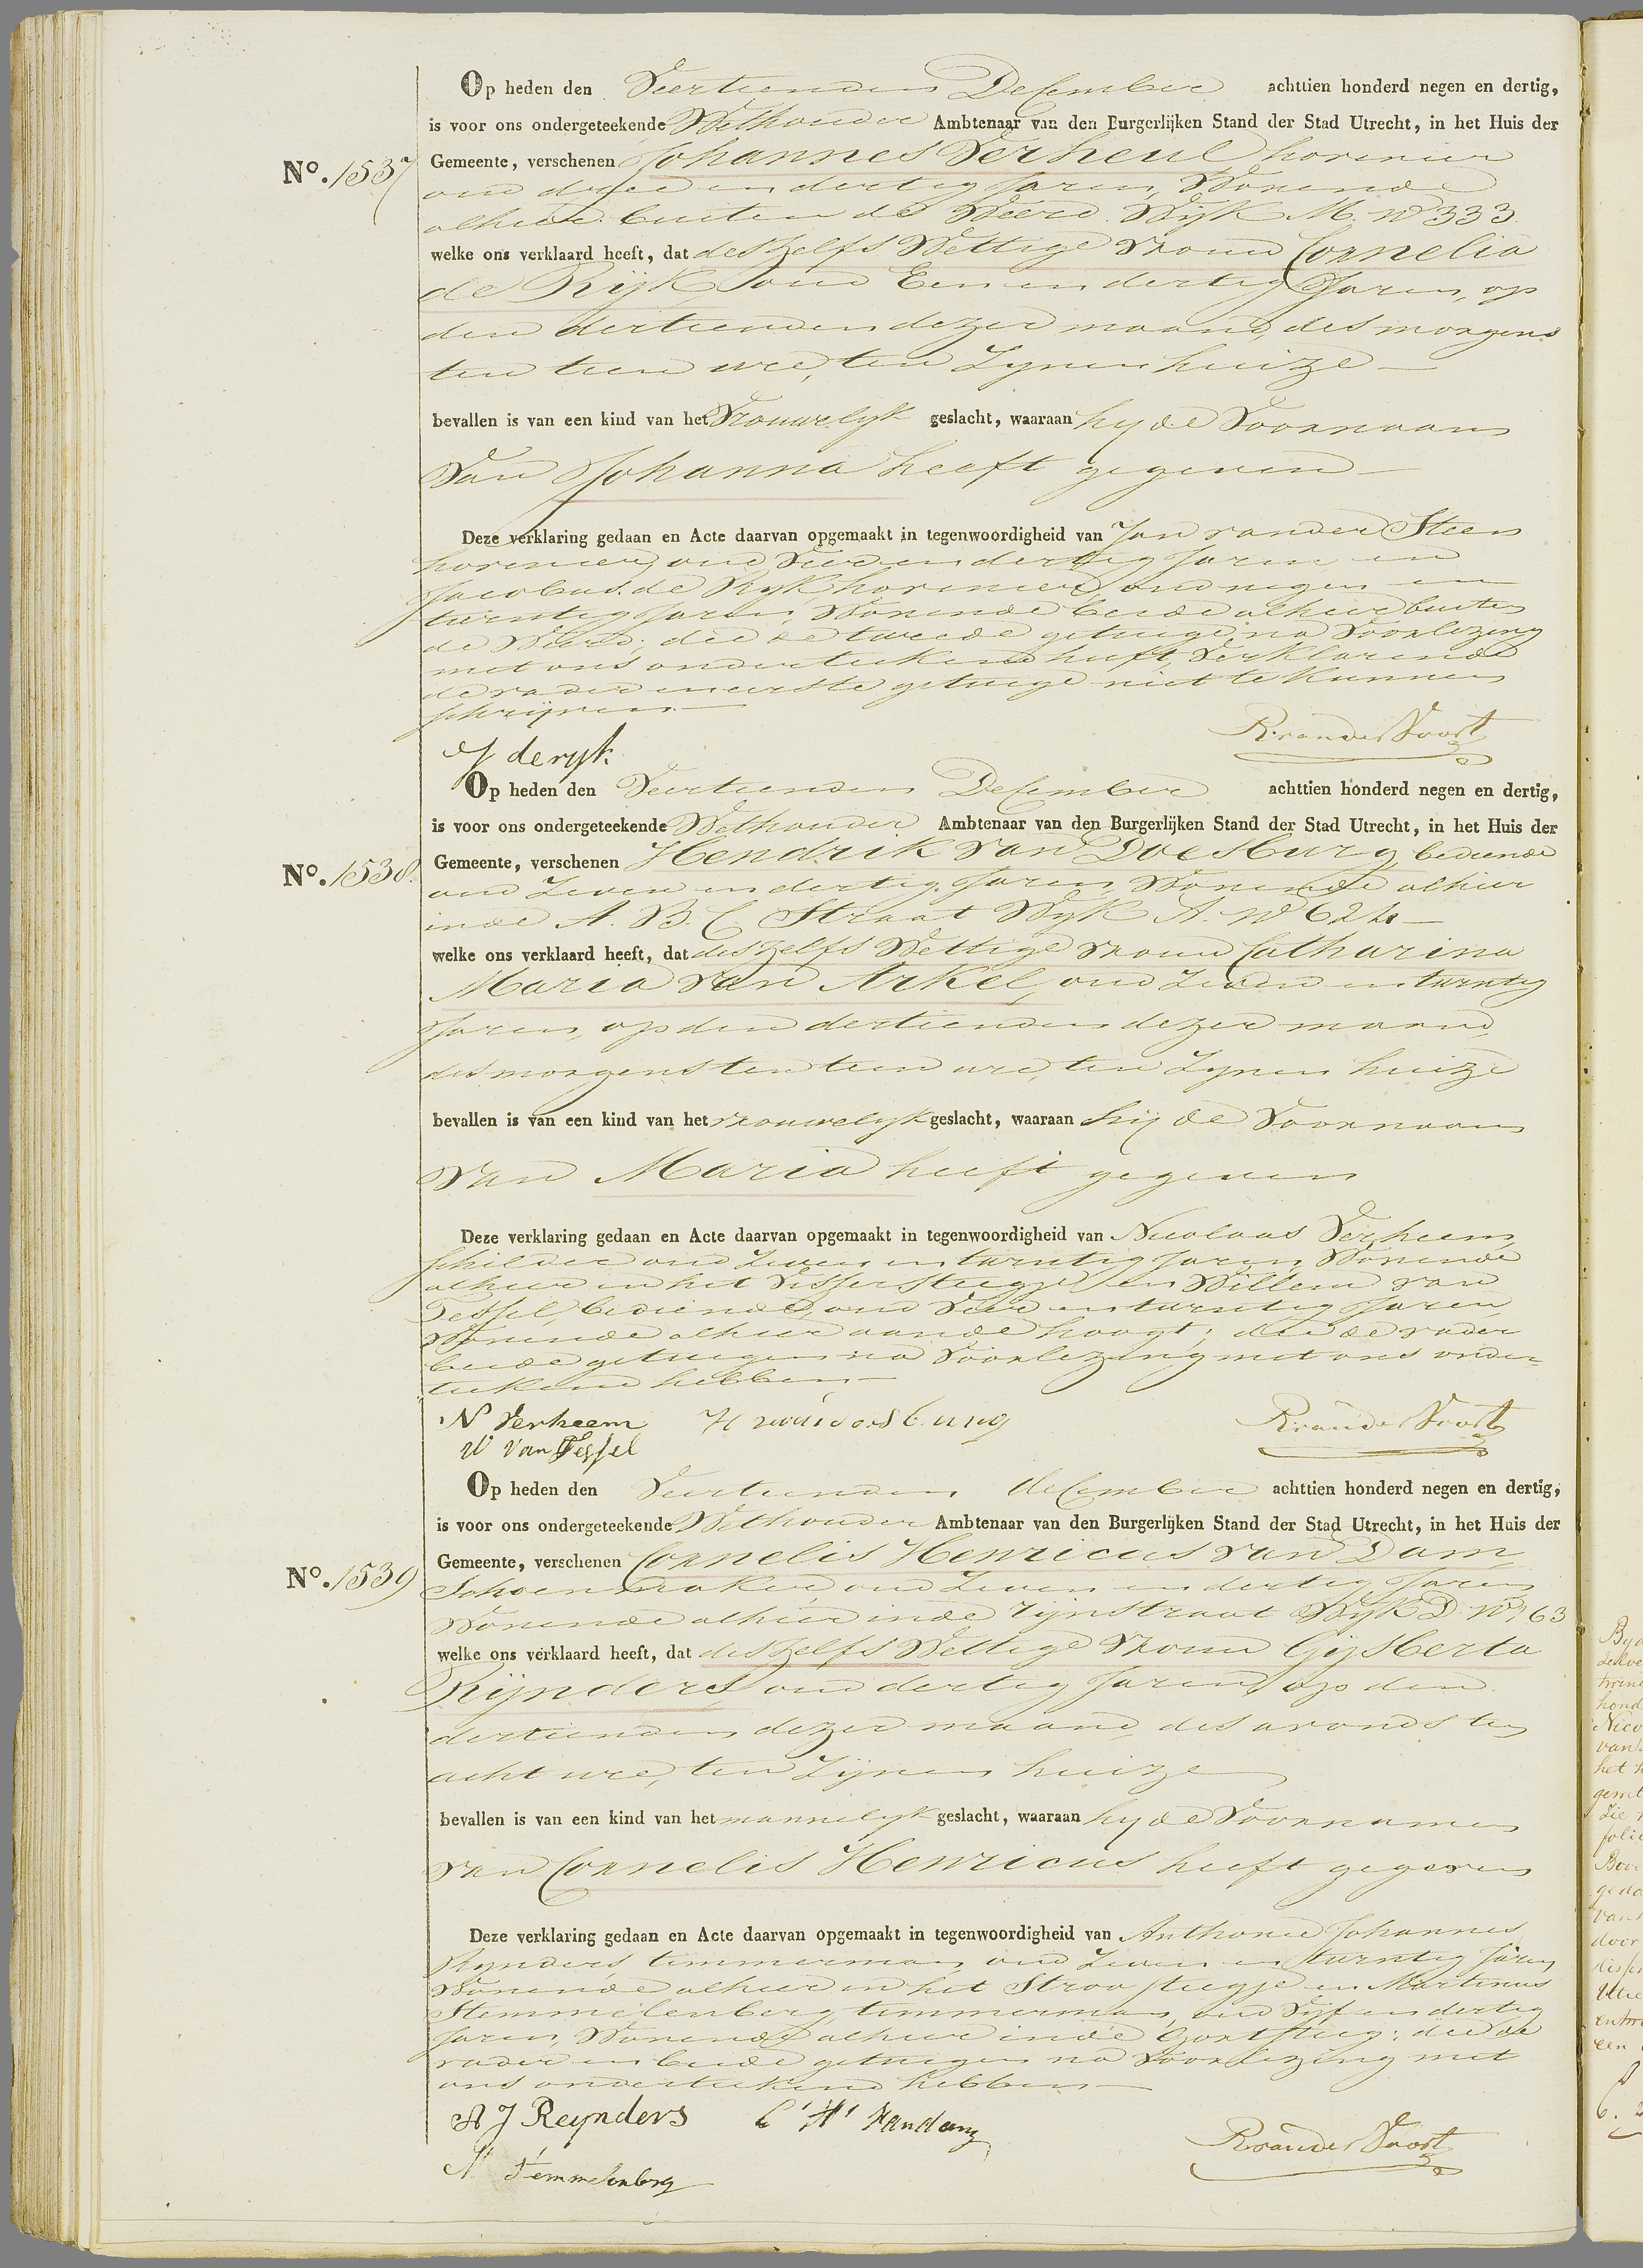 Op heden den Veertienden December achttien honderd negen en dertig,
is voor ons ondergeteekende Wethouder Ambtenaar van den Burgerlijken Stand der Stad Utrecht, in het Huis der
No. 1537
Gemeente, verschenen Johannes Verheul hovenier
oud drie en dertig Jaren, Wonende
alhier buiten de Weerd Wijk M. No 333
welke ons verklaard heeft, dat deszelfs Wettige vrouw Cornelia
de Rijk, oud Een en dertig Jaren, op
den dertienden dezer maand, des morgens
ten tien ure, ten Zynen huize
bevallen is van een kind van het Vrouwelyk geslacht, waaraan hy de Voornaam
van Johanna heeft gegeven
Deze verklaring gedaan en Acte daarvan opgemaakt in tegenwoordigheid van Jan van der Steen
hovenier, oud Vier en dertig Jaren en
Jacobus de Ryk hovenier, oud negen en
twintig Jaren, Wonende beide alhier buiten
de Weerd; die de tweede getuige, na Voorlezing
met ons onderteekend heeft, Verklarende
de vader en eerste getuige niet te kunnen
schrijven
J de ryk R van der Voort
Op heden den Veertienden December achttien honderd negen en dertig,
is voor ons ondergeteekende Wethouder Ambtenaar van den Burgerlijken Stand der Stad Utrecht, in het Huis der
No. 1538.
Gemeente, verschenen Hendrik van Doesburg, bediende
oud Zeven en dertig Jaren, Wonende alhier
in de A. B. C Straat Wyk A. No 624
welke ons verklaard heeft, dat deszelfs Wettige vrouw Catharina
Maria van Arkel, oud Zeven en twintig
Jaren, op den dertienden dezer maand,
des morgens ten tien ure, ten Zynen huize
bevallen is van een kind van het vrouwelyk geslacht, waaraan hij de Voornaam
van Maria heeft gegeven
Deze verklaring gedaan en Acte daarvan opgemaakt in tegenwoordigheid van Nicolaas Verheem
schilder oud Zeven en twintig Jaren, Wonende
alhier in het Vissersteegje en Willem van
Tessel, bediende, oud Vier en twintig Jaren
Wonende alhier aan de hoogt; die de vader
beide getuigen na Voorlezing met ons onder-
teekend hebben
N Verheem H van doesburg R van der Voort
W van Tessel
Op heden den Veertienden december achttien honderd negen en dertig,
is voor ons ondergeteekende Wethouder Ambtenaar van den Burgerlijken Stand der Stad Utrecht, in het Huis der
No. 1539
Gemeente, verschenen Cornelis Henricus van Dam
Schoenmaker, oud Zeven en dertig Jaren
Wonende alhier in de Rijnstraat Wyk D. No. 63
welke ons verklaard heeft, dat deszelfs Wettige Vrouw Gijsberta
Rijnders, oud dertig Jaren, op den
dertienden dezer maand, des avonds ten
acht ure, ten Zijnen huize
bevallen is van een kind van het mannelyk geslacht, waaraan hy de Voornamen
van Cornelis Henricus heeft gegeven
Deze verklaring gedaan en Acte daarvan opgemaakt in tegenwoordigheid van Anthonie Johannes
Rynders timmerman, oud Zeven en twintig Jaren
Wonende alhier in het Stroosteegje en Martinus
Stemmelenberg, timmerman, oud Vijf en dertig
Jaren, Wonende alhier in de Gortsteeg; die de
vader en beide getuigen na Voorlezing met
ons onderteekend hebben
A J Reynders C H van dam R van der Voort